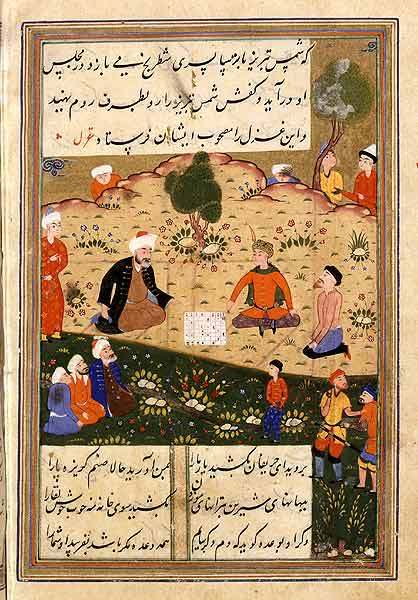 که شمس تبریز با ترسا پسری شطرنج می بازد در مجلس
او درآید و کفش شمس تبریز را رو بطرف روم بنهید
و این غزل را مصحوب ایشان فرستاد قول
بروید ای حریفان بکشید یار ما را بمن آورید حالا صنم گریزه پا را
ببهانهای شیرین بترانهای بکشید سوی خانه مه خوب خوش لقا را
وگر او بوعده گوید که دم دگر بیایم همه وعده مکر باشد بفریبد او شما را